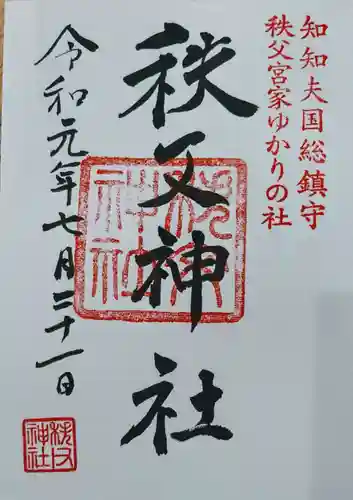 知知夫国総鎮守
秩父宮家ゆかりの社
秩父神社
令和元年七月二十一日
秩父神社
秩父神社